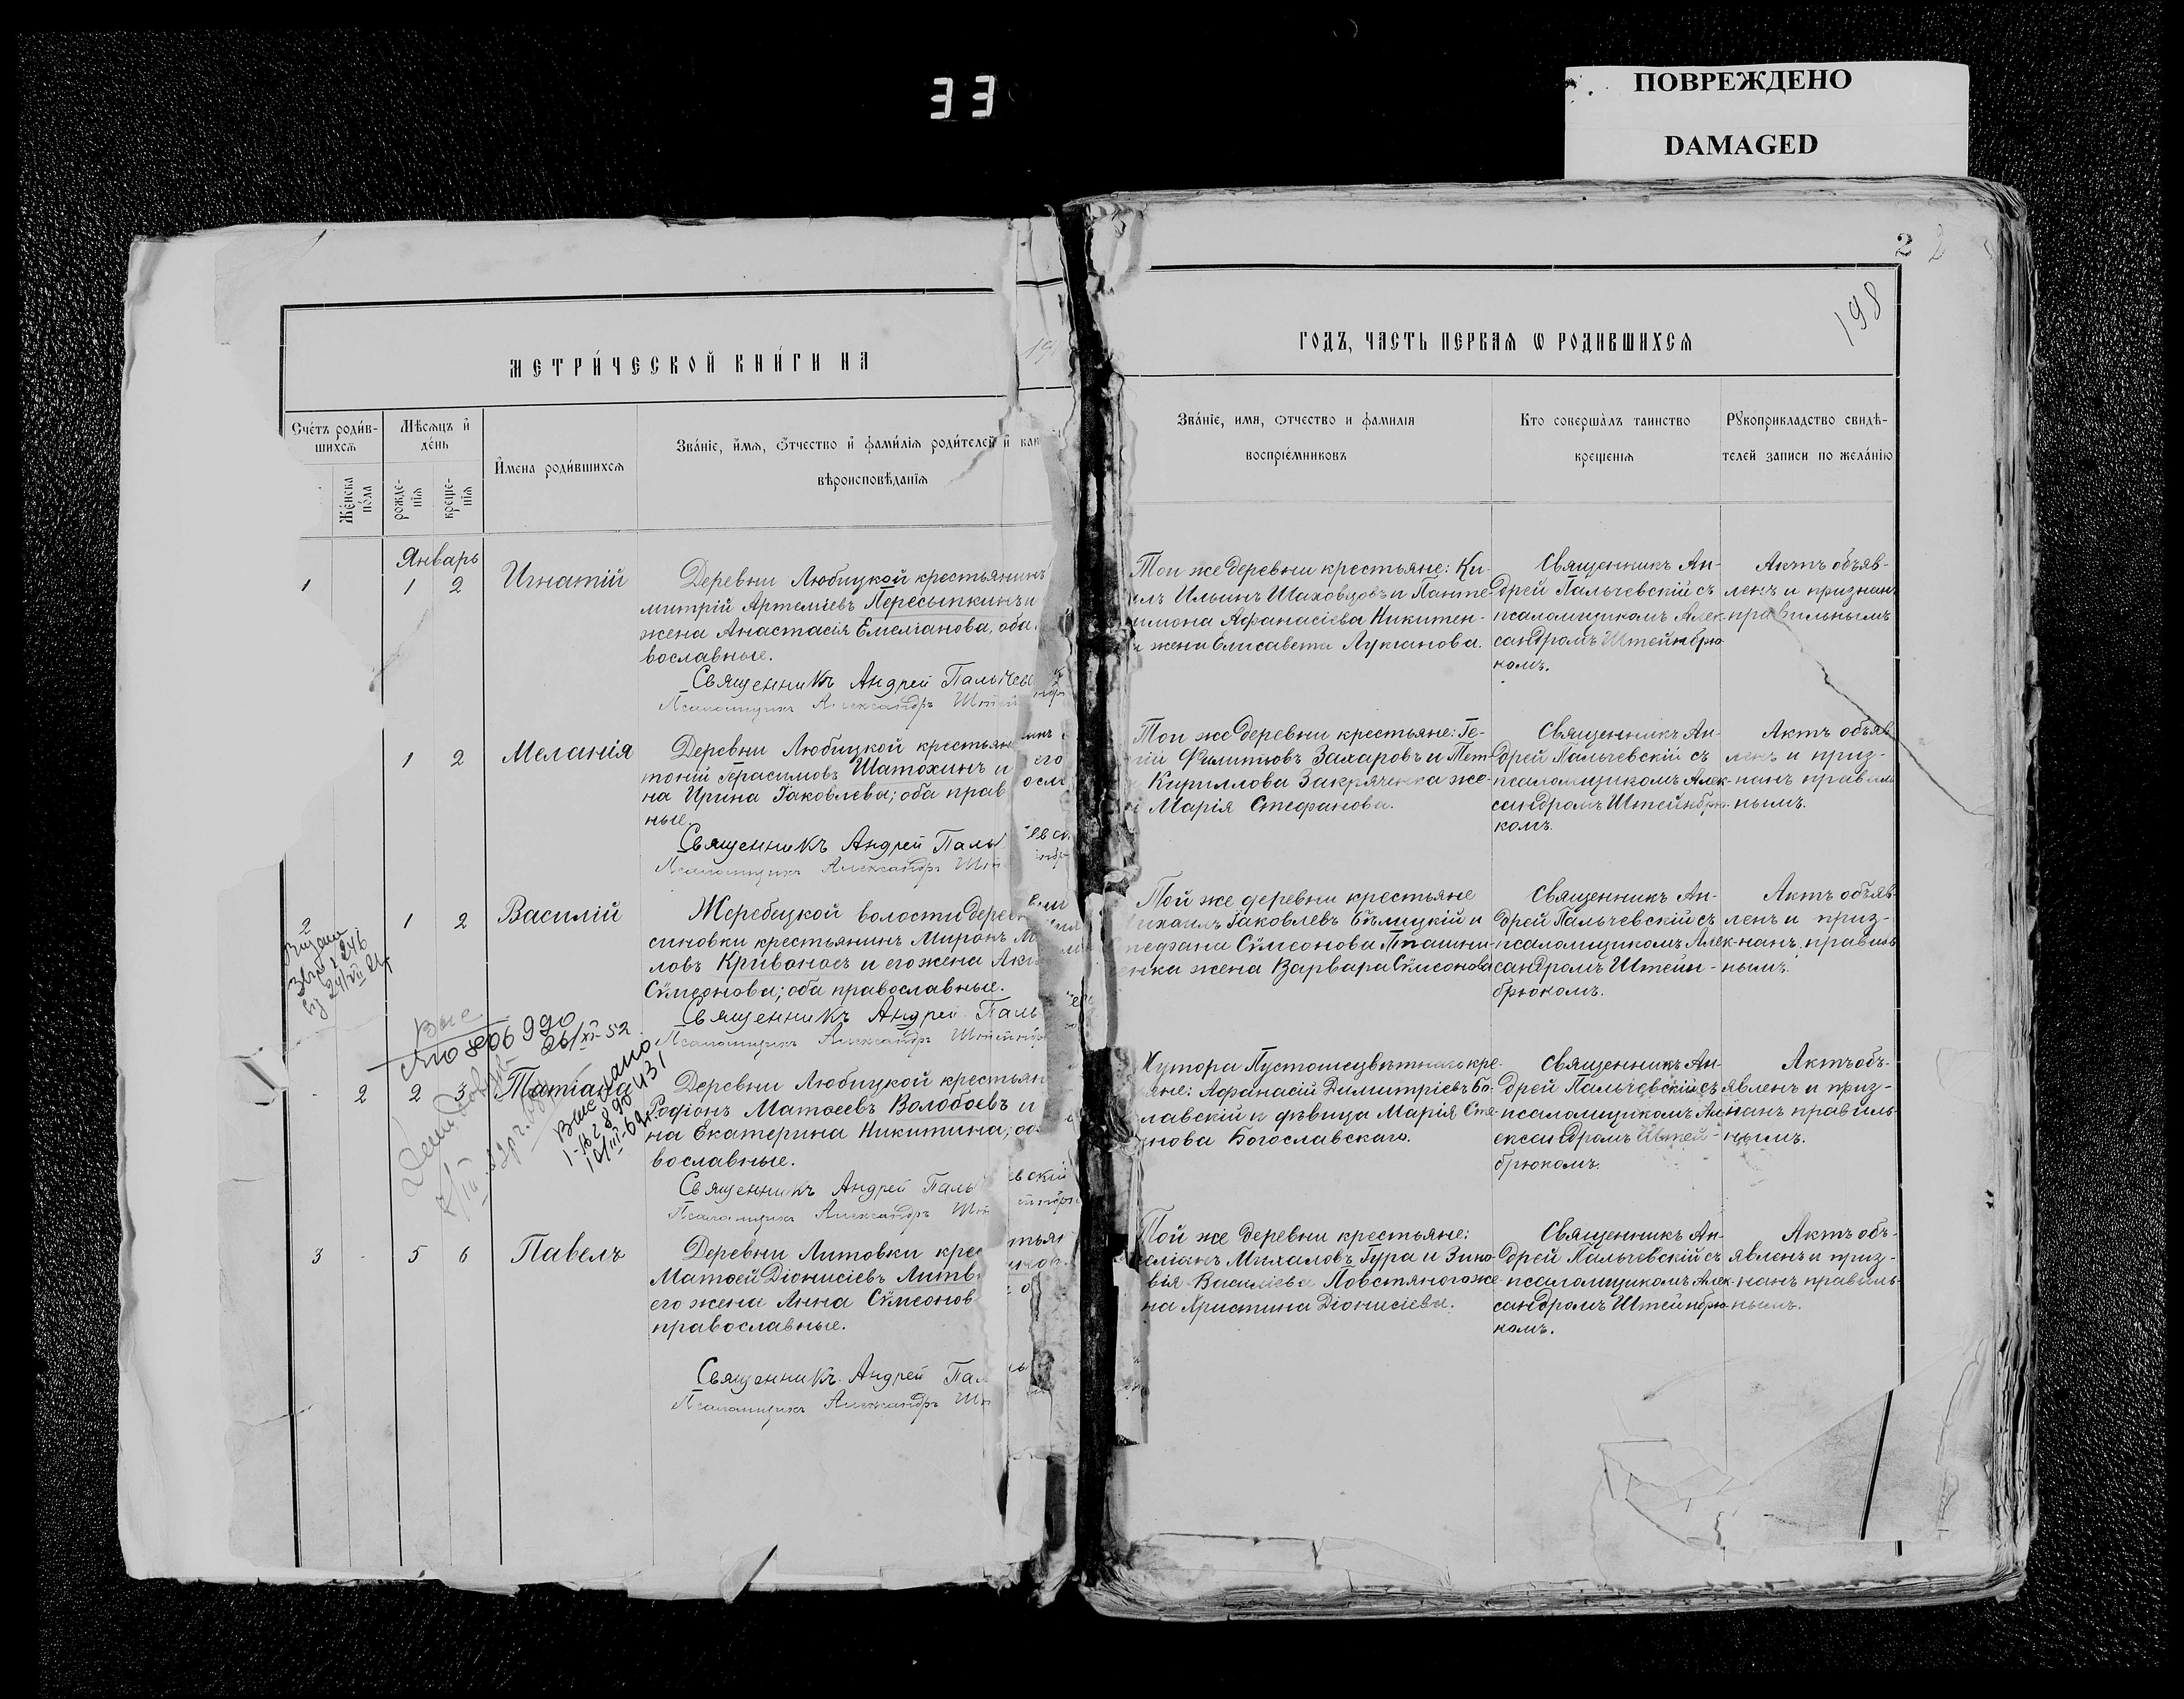 33
ПОВРЕЖДЕНО
DAMAGED
2 2
198
МЕТРИ́ЧЕСКОЙ КНИ́ГИ НА
19
ГОДЪ, ЧАСТЬ ПЕРВАѦ Ѡ РОДИВШИХСѦ
Сче́тъ роди́в-
шихсѧ
Же́нска
по́ла
Мѣ́сѧцъ и҆
де́нь
рожде-
нїѧ
креще-
нїѧ
И҆мена роди́вшихсѧ
Зва́нїе, и҆́мѧ, ѻ҆́тчество и҆ фами́лїѧ роди́телей и҆
вѣроисповѣ́данїѧ
Зва́нїе, имя, ѻтчество и фамилїя
воспрїе́мниковъ
Кто соверша̀лъ таинство
крещенїя
Рꙋкоприкладство свидѣ-
телей записи по жела́нїю
Январь
1 1 2 Игнатій
Деревни Любицкой крестьянинъ
митрій Артеміевъ Пересыпкинъ и
жена Анастасія Емеліанова, оба
вославные.
Священникъ Андрей Пальчев
Псаломщикъ Александръ Штей
Той же деревни крестьяне: Ки-
Ильинъ Шаховцовъ и Панте-
имона Афанасіева Никитен-
жена Елисавета Лукіанова.
Священникъ Ан-
дрей Пальчевскій съ
псаломщикомъ Алек-
сандромъ Штейнбрю-
комъ.
Актъ объяв-
ленъ и признанъ
правильнымъ
1 2 Меланія
Деревни Любицкой крестьян
тоній Герасимовъ Шатохинъ и его
на Ирина Іаковлева; оба прав осла
ные.
Священникъ Андрей Паль
Псаломщикъ Александръ Шт
Той же деревни крестьяне: Ге-
Филиповъ Захаровъ и Пет-
Кириллова Закряченка же-
Марія Стефанова.
Священникъ Ан-
дрей Пальчевскій съ
псаломщикомъ Алек-
сандромъ Штейнбрю-
комъ.
Актъ объяв
ленъ и приз-
нанъ правиль
нымъ.
2 1 2 Василій
Жеребецкой волости дерев
синовки крестьянинъ Миронъ М
ловъ Кривоносъ и его жена Аки
Сѵмеонова; оба православные.
Священникъ Андрей Паль
Псаломщикъ Александръ Штейнбр
Той же деревни крестьяне
ихаилъ Іаковлевъ Бѣлицкій и
Сѵмеонова Пташни-
енка жена Варвара Сѵмеонова
Священникъ Ан-
дрей Пальчевскій съ
псаломщикомъ Алек-
сандромъ Штейн-
брюкомъ.
Актъ объяв
ленъ и приз-
нанъ правиль
нымъ.
2 2 3 Татіана
Деревни Любицкой крестьян
Родіонъ Матѳеевъ Волобоевъ и
на Екатерина Никитина; оба
вославные.
Священникъ Андрей Паль евскій
Псаломщикъ Александръ Шт
Хутора Пустописцвѣтнаго кре-
яне: Афанасій Димитріевъ Бо-
лавскій и дѣвица Марія Сте-
нова Богославскаго.
Священникъ Ан-
дрей Пальчевскій съ
псаломщикомъ Ал-
ександромъ Штей-
брюкомъ.
Актъ объ-
явленъ и приз-
нанъ правиль-
нымъ.
3 5 6 Павелъ
Деревни Литовки кре
Матѳей Діонисіевъ Литв
его жена Анна Сѵмеонов
православные.
Священникъ Андрей Пал
Псаломщикъ Александръ Шт
Той же деревни крестьяне:
Михаловъ Гура и Зино-
вія Василіева Повстяного же-
на Христина Діонисіева.
Священникъ Ан-
дрей Пальчевскій съ
псаломщикомъ Алек-
сандромъ Штейнбрю-
комъ.
Актъ объ-
явленъ и приз-
нанъ правиль-
нымъ.